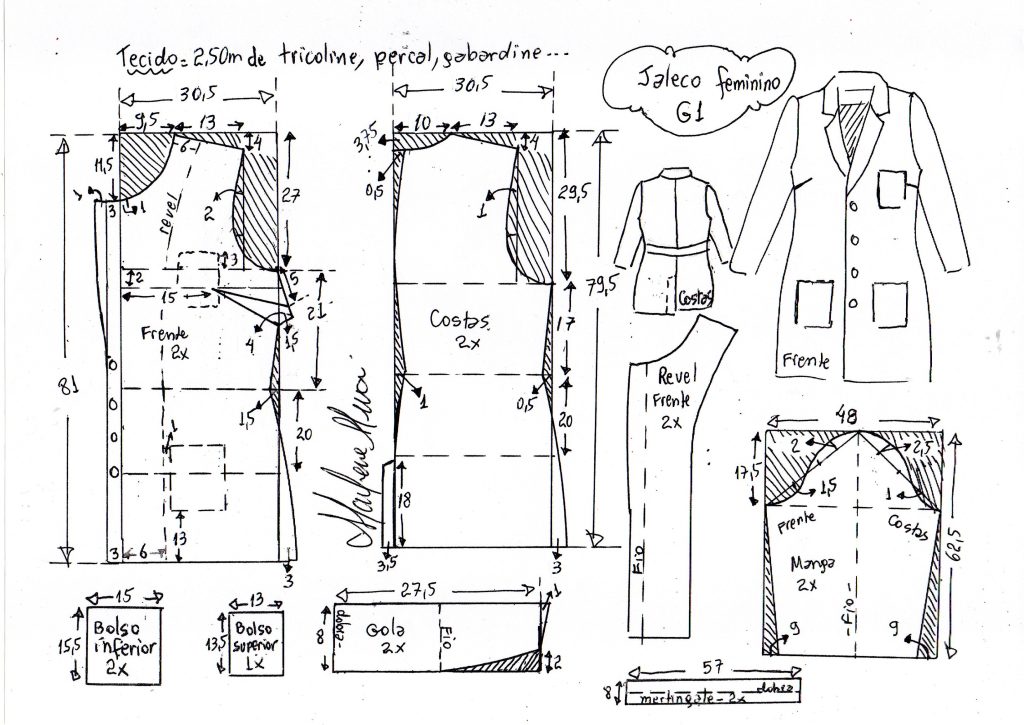 Tecido = 2,50m de tricoline, percal, gabardine...
Jaleco feminino
G1
30,5
9,5
13
11,5
4
6
1
1
3
revel
2
27
3
2
15
5
21
4
1,5
Frente
2x
81
1,5
20
1
13
3
6
3
30,5
3,75
10
13
4
0,5
1
29,5
79,5
Costas
2x
17
1
0,5
20
18
3,5
3
Marlene Mukai
Costas
Frente
Revel
Frente
2x
Fio
48
17,5
2
2,5
1,5
1
Frente
Costas
Manga
2x
-Fio-
62,5
9
9
15
15,5
Bolso
inferior
2x
13
13,5
Bolso
superior
1x
27,5
8
dobra
Gola
2x
Fio
1
2
57
8
martingale - 2x
dobra